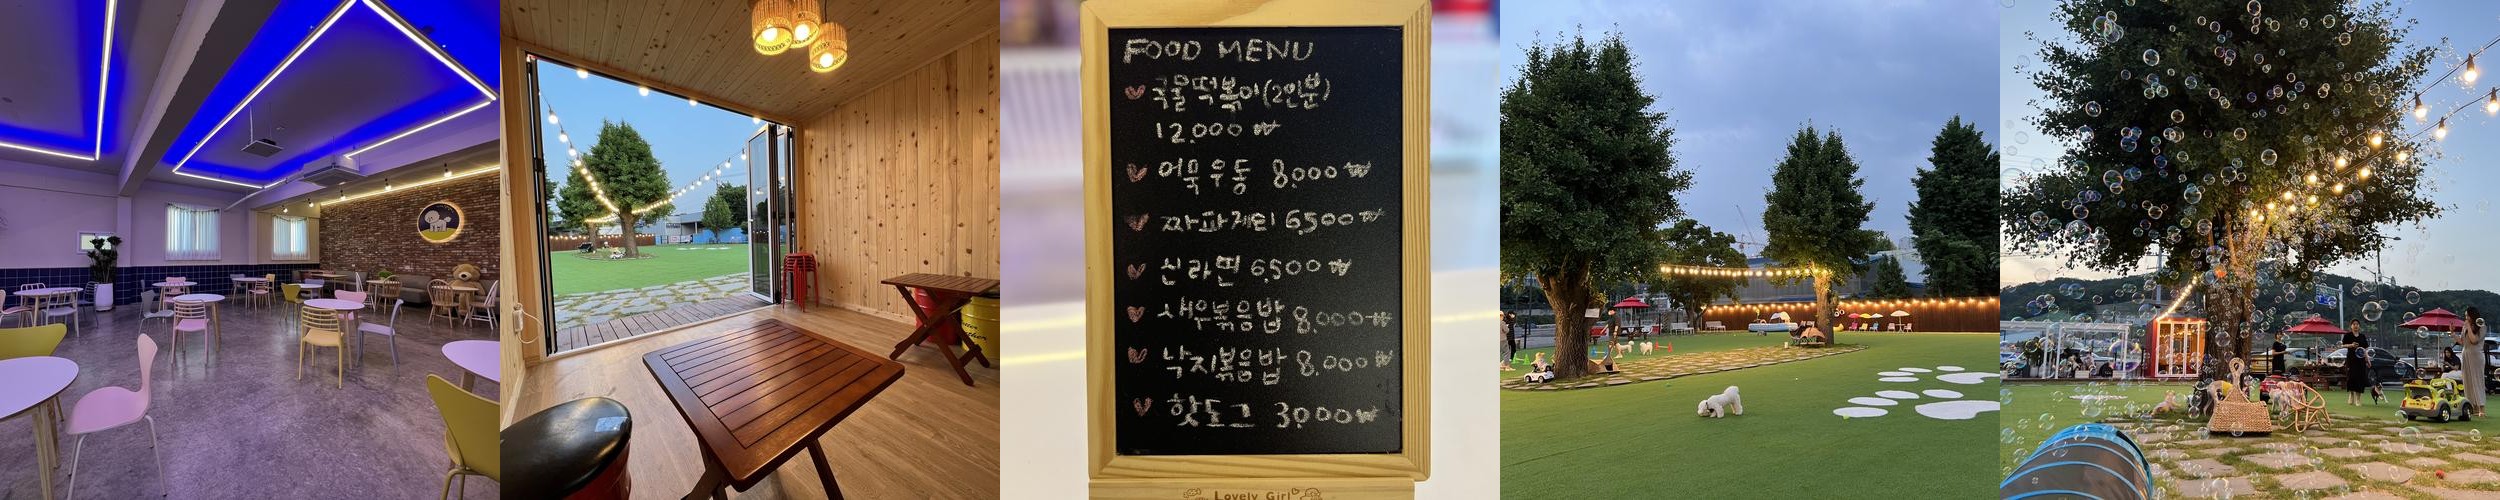 FOOD MENU
국물떡볶이(2인분)
12,000 ₩
어묵우동 8,000 ₩
짜파게티 6,500 ₩
신라면 6,500 ₩
새우볶음밥 8,000 ₩
낙지볶음밥 8,000 ₩
핫도그 3,000 ₩
Lovely Girl